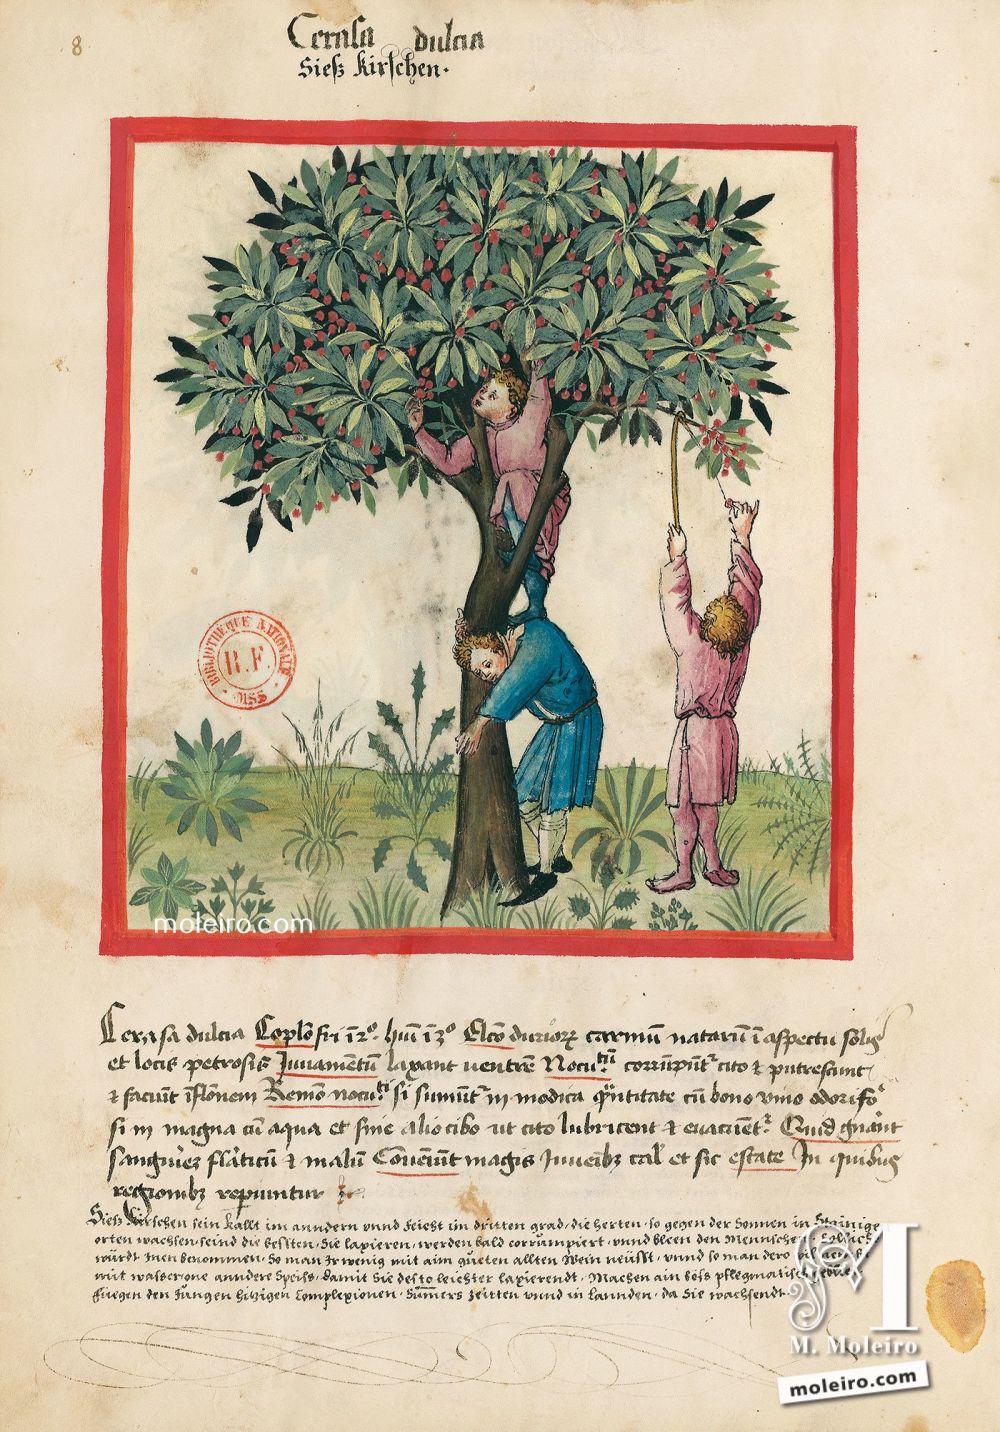 8
Cerasa dulcia
Siesz Kirschen.
BIBLIOTHÈQUE NATIONALE
R.F.
MSS
moleiro.com
Cerasa dulcia Coplo fri i 2º. hui i 3º Elco carnium natarum i aspectu solis
et locis petrosis Juvamentum laxant ventrem Nocu.tum corrumpunt cito & putrescunt
& faciunt Remo nocu.ti si sumunt in modica quantitate cum bono vino odorifero
si in magna cum aqua et sine alio cibo ut cito lubricent & evacuent. Quid gnant
& malum Conveniunt magis Juvenibus cal et sic estate In quibus
regionibus reperiuntur
Siesz Kirschen sein kallt im anndern vnnd feicht im dritten grad. die herten. so gegen der Sonnen in Stainige
orten wachsen. seind die bessten. Sie laxieren. werden bald corrumpiert. vnnd bleen den Mennschen. Solhs
würdt Inen benommen. So man Ir wenig mit aim gueten allten Wein neüsst. vnnd so man dero
mit wasser one anndere Speiß. damit Sie desto leichter laxierendt. Machen ain böss
fuegen den Jungen hitzigen Complexionen. Sumers zeitten vnnd in Lannden. da Sie wachsendt.
M
M. Moleiro
moleiro.com